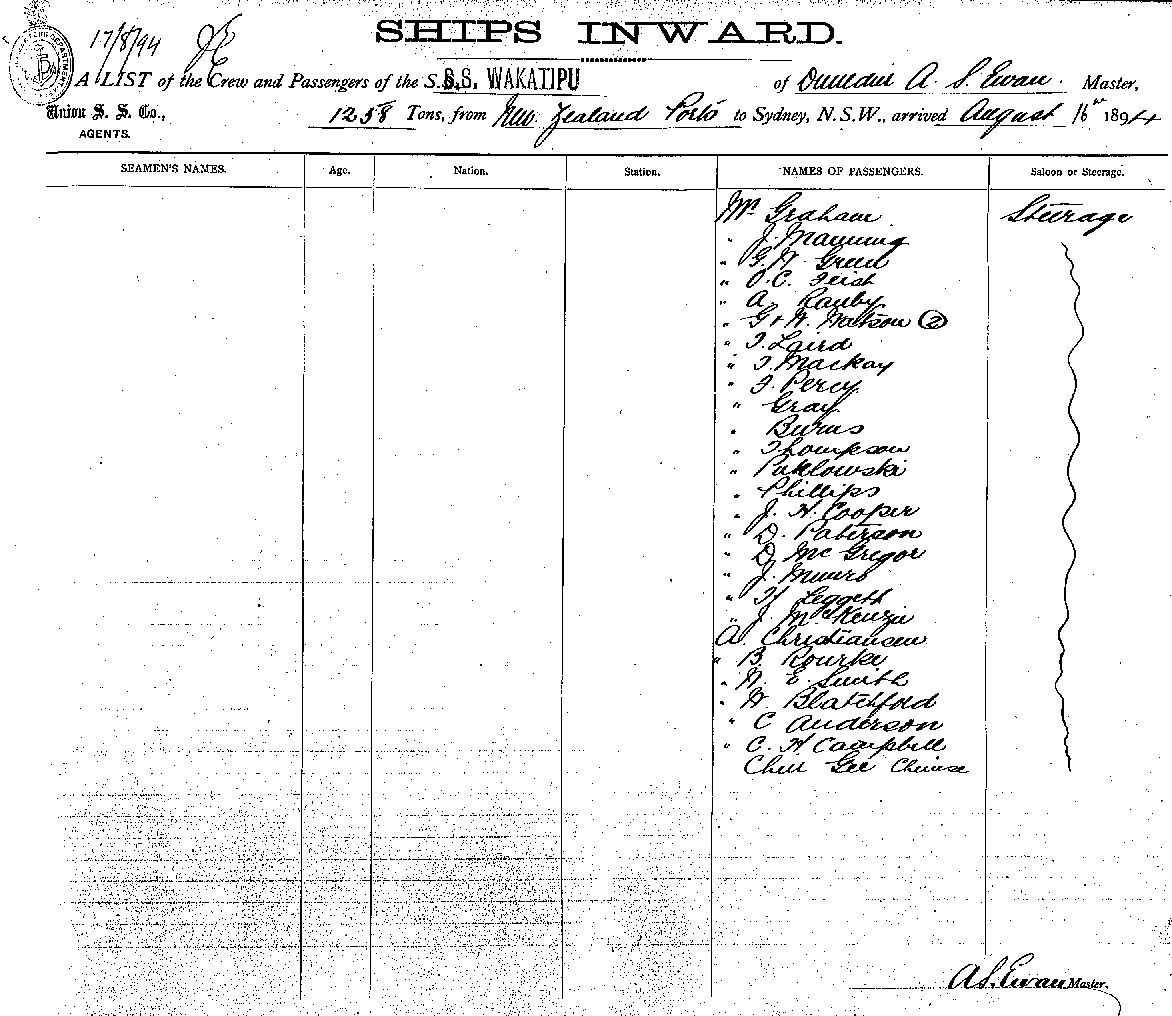 17/8/94
SHIPS INWARD.
A LIST of the Crew and Passengers of the S.S. S.S. WAKATIPU of Dunedin A. S. Ewan. Master,
Union S. S. Co.,
AGENTS.
1258 Tons, from New Zealand Ports to Sydney, N.S.W., arrived August 16th 1894
SEAMEN'S NAMES. Age. Nation. Station. NAMES OF PASSENGERS. Saloon or Steerage.
Mr Graham Steerage
" J. Manning
" Green
" O. C.
" A.
" G & W. Watson (2)
" Laird
" Mackay
" Percy
" Gray
" Burns
" Thompson
" Paklowski
" Phillips
" J. H. Cooper
" D. Paterson
" D McGregor
" J. Munro
" Leggett
" J. McKenzie
A. Christiansen
" B. Rourke
" W. E. Smith
" W Blatchford
" C Anderson
" C. H Campbell
Gee Chinese
A S. Ewan Master.